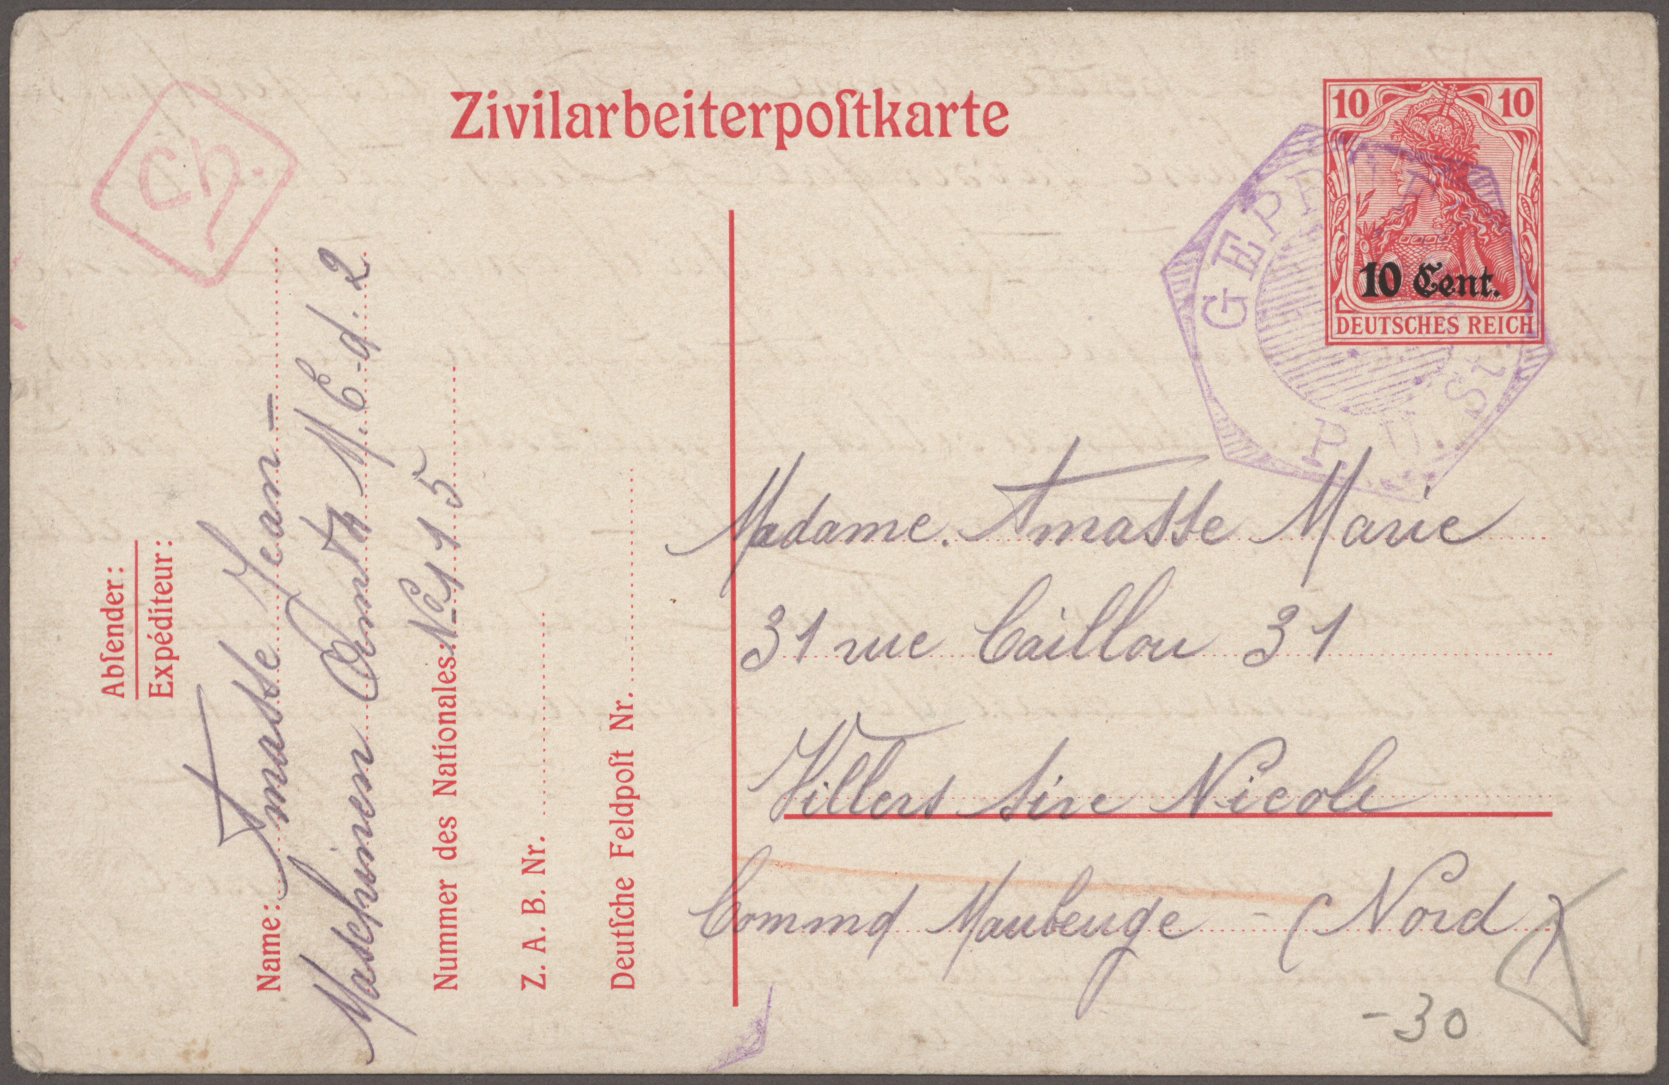 Zivilarbeiterpoſtkarte
10 10
10 Cent.
DEUTSCHES REICH
Ch.
GEPRÜFT
P. Ü. St.
Abſender:
Expéditeur:
Name: Tmasse Jean
Maschinen Amt M. E. d. 2
Nummer des Nationales: No 115
Z. A. B. Nr.
Deutſche Feldpoſt Nr.
Madame. Tmasse Marie
31 rue Caillou 31
Villers sire Nicole
Commd Maubeuge - (Nord)
-30